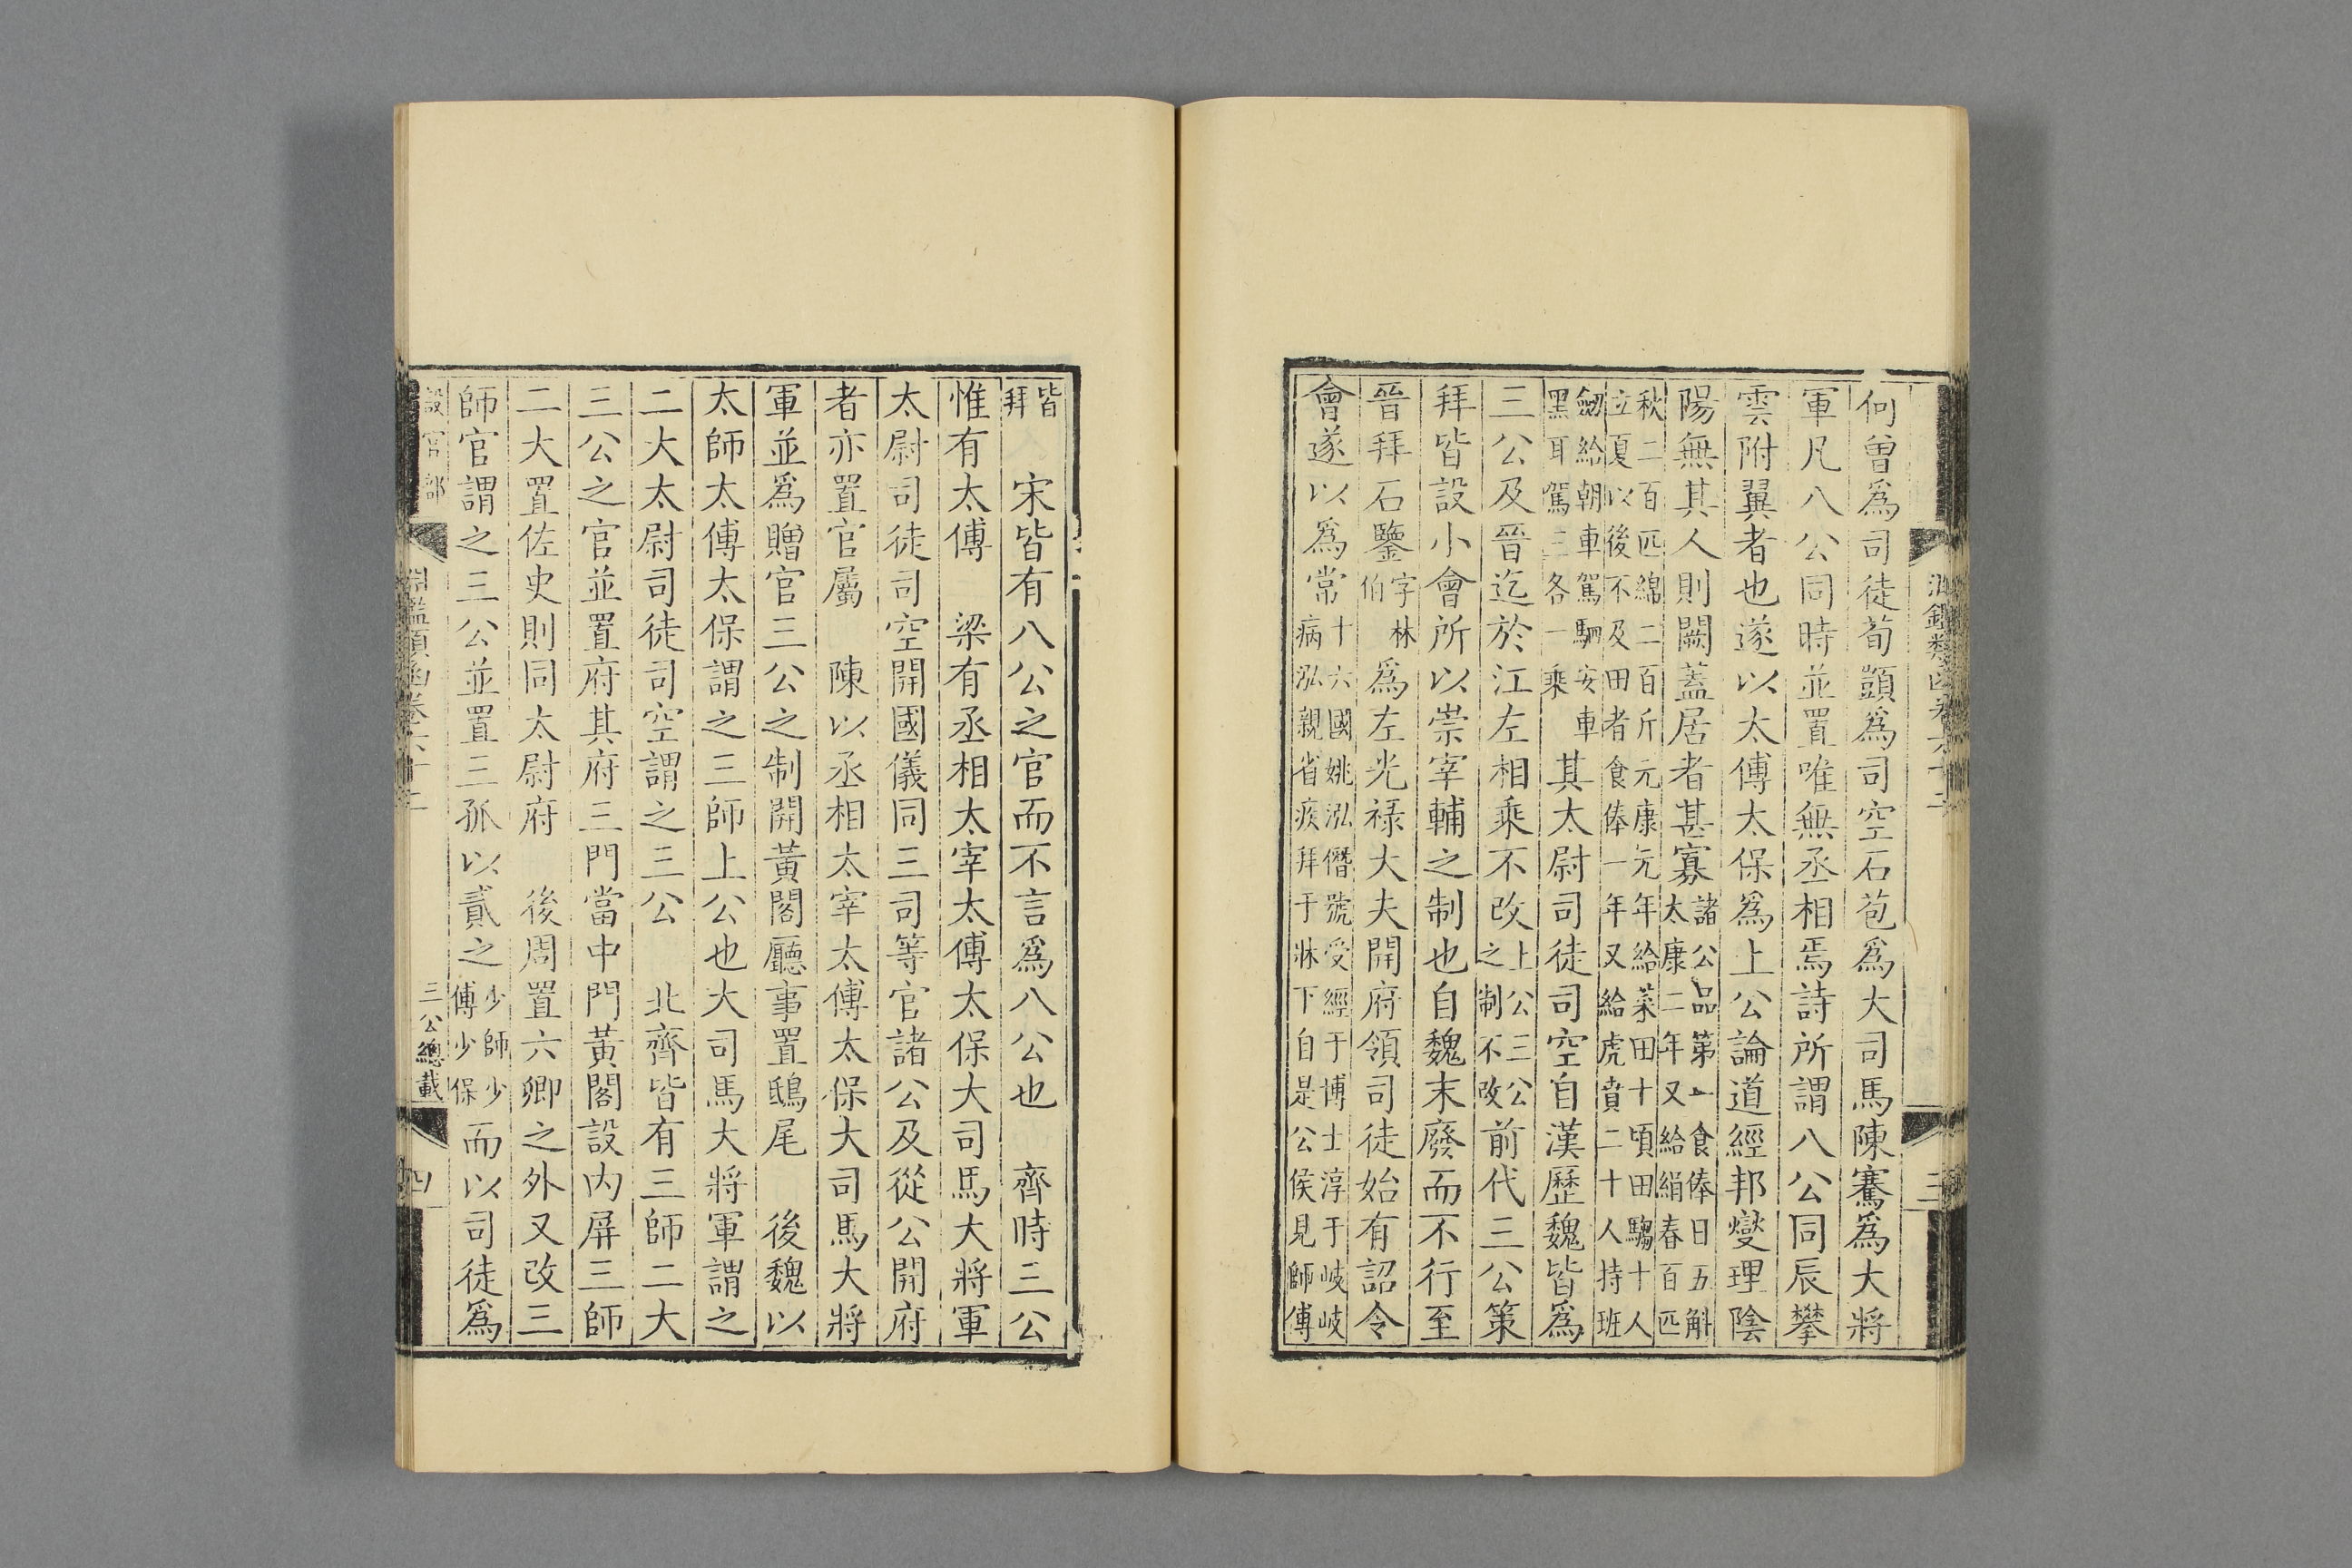 何曾爲司徒荀顗爲司空石苞爲大司馬陳騫爲大將
軍凡八公同時並置唯無丞相焉詩所謂八公同辰攀
雲附翼者也遂以太傅太保爲上公論道經邦燮理陰
陽無其人則闕蓋居者甚寡諸公品第一食俸日五斛太康二年又給絹春百匹
秋二百匹綿二百斤元康元年給菜田十頃田騶十人立夏以後不及田者食俸一年又給虎賁二十人持班
劒給朝車駕駟安車黑耳駕三各一乘其太尉司徒司空自漢歷魏皆爲
三公及晉迄於江左相乘不改上公三公之制不改前代三公策
拜皆設小會所以崇宰輔之制也自魏末廢而不行至
晉拜石鑒字林伯爲左光祿大夫開府領司徒始有詔令
會遂以爲常十六國姚泓僭號受經于博士淳于岐岐病泓親省疾拜于牀下自是公侯見師傅
淵鑑類函卷六十二
三
皆拜 宋皆有八公之官而不言爲八公也 齊時三公
惟有太傅 梁有丞相太宰太傅太保大司馬大將軍
太尉司徒司空開國儀同三司等官諸公及從公開府
者亦置官屬 陳以丞相太宰太傅太保大司馬大將
軍並爲贈官三公之制開黃閣廳事置鴟尾 後魏以
太師太傅太保謂之三師上公也大司馬大將軍謂之
二大太尉司徒司空謂之三公 北齊皆有三師二大
三公之官並置府其府三門當中門黃閣設內屏三師
二大置佐史則同太尉府 後周置六卿之外又改三
師官謂之三公並置三孤以貳之少師少傅少保而以司徒爲
設官部
淵鑑類函卷六十二
三公總載
四